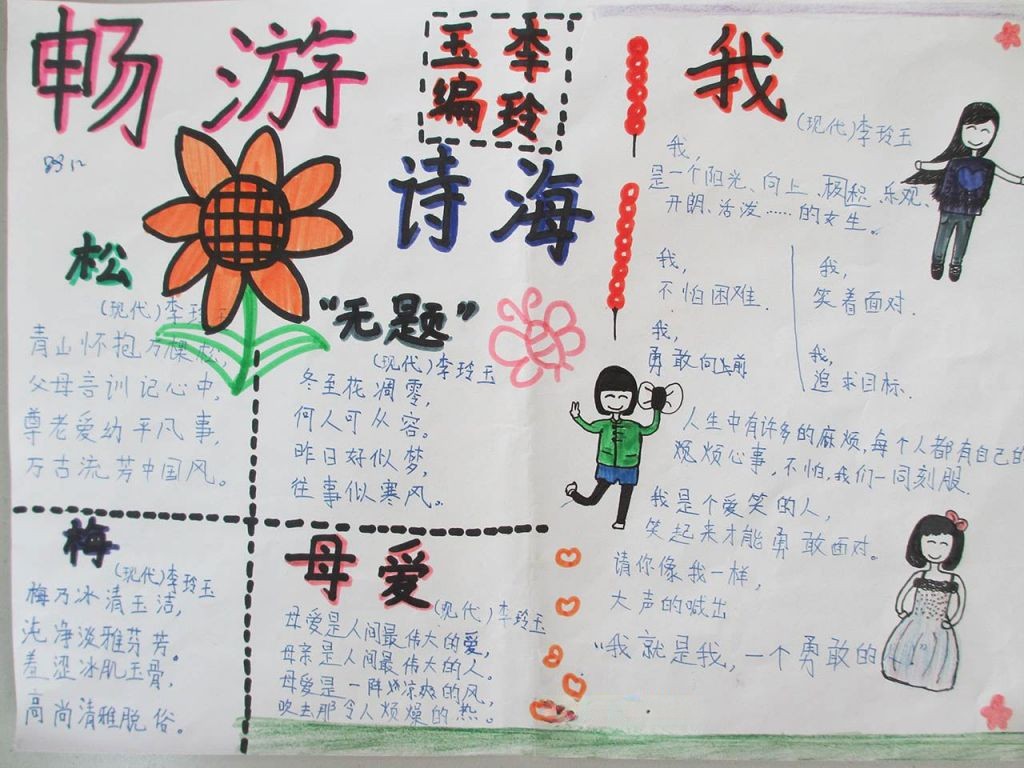 畅游
诗海
李玲
玉编
松
(现代)李玲玉
青山怀抱万棵松,
父母言训记心中,
尊老爱幼平凡事,
万古流芳中国风。
"无题"
(现代)李玲玉
冬至花凋零,
何人可从容。
昨日好似梦,
往事似寒风。
梅
(现代)李玲玉
梅乃冰清玉洁,
纯净淡雅芬芳。
羞涩冰肌玉骨,
高尚清雅脱俗。
母爱
(现代)李玲玉
母爱是人间最伟大的爱,
母亲是人间最伟大的人。
母爱是一阵凉爽的风,
吹去那令人烦燥的热。
我
(现代)李玲玉
我,
是一个阳光、向上、积极、乐观、
开朗、活泼……的女生。
我,
不怕困难.
我,
勇敢向上前
我,
笑着面对.
我,
追求目标.
人生中有许多的麻烦,每个人都有自己的
烦心事,不怕,我们一同刻服.
我是个爱笑的人,
笑起来才能勇敢面对。
请你像我一样,
大声的喊出
"我就是我,一个勇敢的